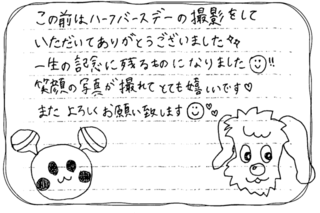 この前はハーフバースデーの撮影をして
いただいてありがとうございました♪♪
一生の記念に残るものになりました☺!!
笑顔の写真が撮れてとても嬉しいです♡
またよろしくお願い致します☺♡♡